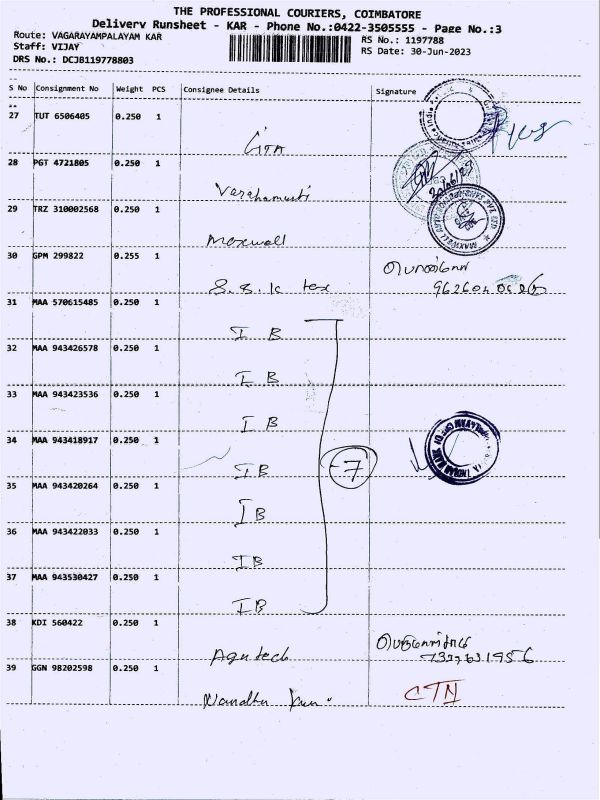 THE PROFESSIONAL COURIERS, COIMBATORE
Delivery Runsheet - KAR - Phone No.:0422-3505555 - Page No.:3
Route: VAGARAYAMPALAYAM KAR
RS No.: 1197788
Staff: VIJAY
RS Date: 30-Jun-2023
DRS No.: DCJB119778803
S No Consignment No Weight PCS Consignee Details Signature
27 TUT 6506405 0.250 1
28 PGT 4721805 0.250 1
30/06/23
29 TRZ 310002568 0.250 1
Maxwell
30 GPM 299822 0.255 1
S.S.K tex
31 MAA 570615485 0.250 1
I B
32 MAA 943426578 0.250 1
I B
33 MAA 943423536 0.250 1
I B
34 MAA 943418917 0.250 1
I B
7
35 MAA 943420264 0.250 1
I B
36 MAA 943422033 0.250 1
I B
37 MAA 943530427 0.250 1
I B
38 KDI 560422 0.250 1
Agutech
39 GGN 98202598 0.250 1
CTN